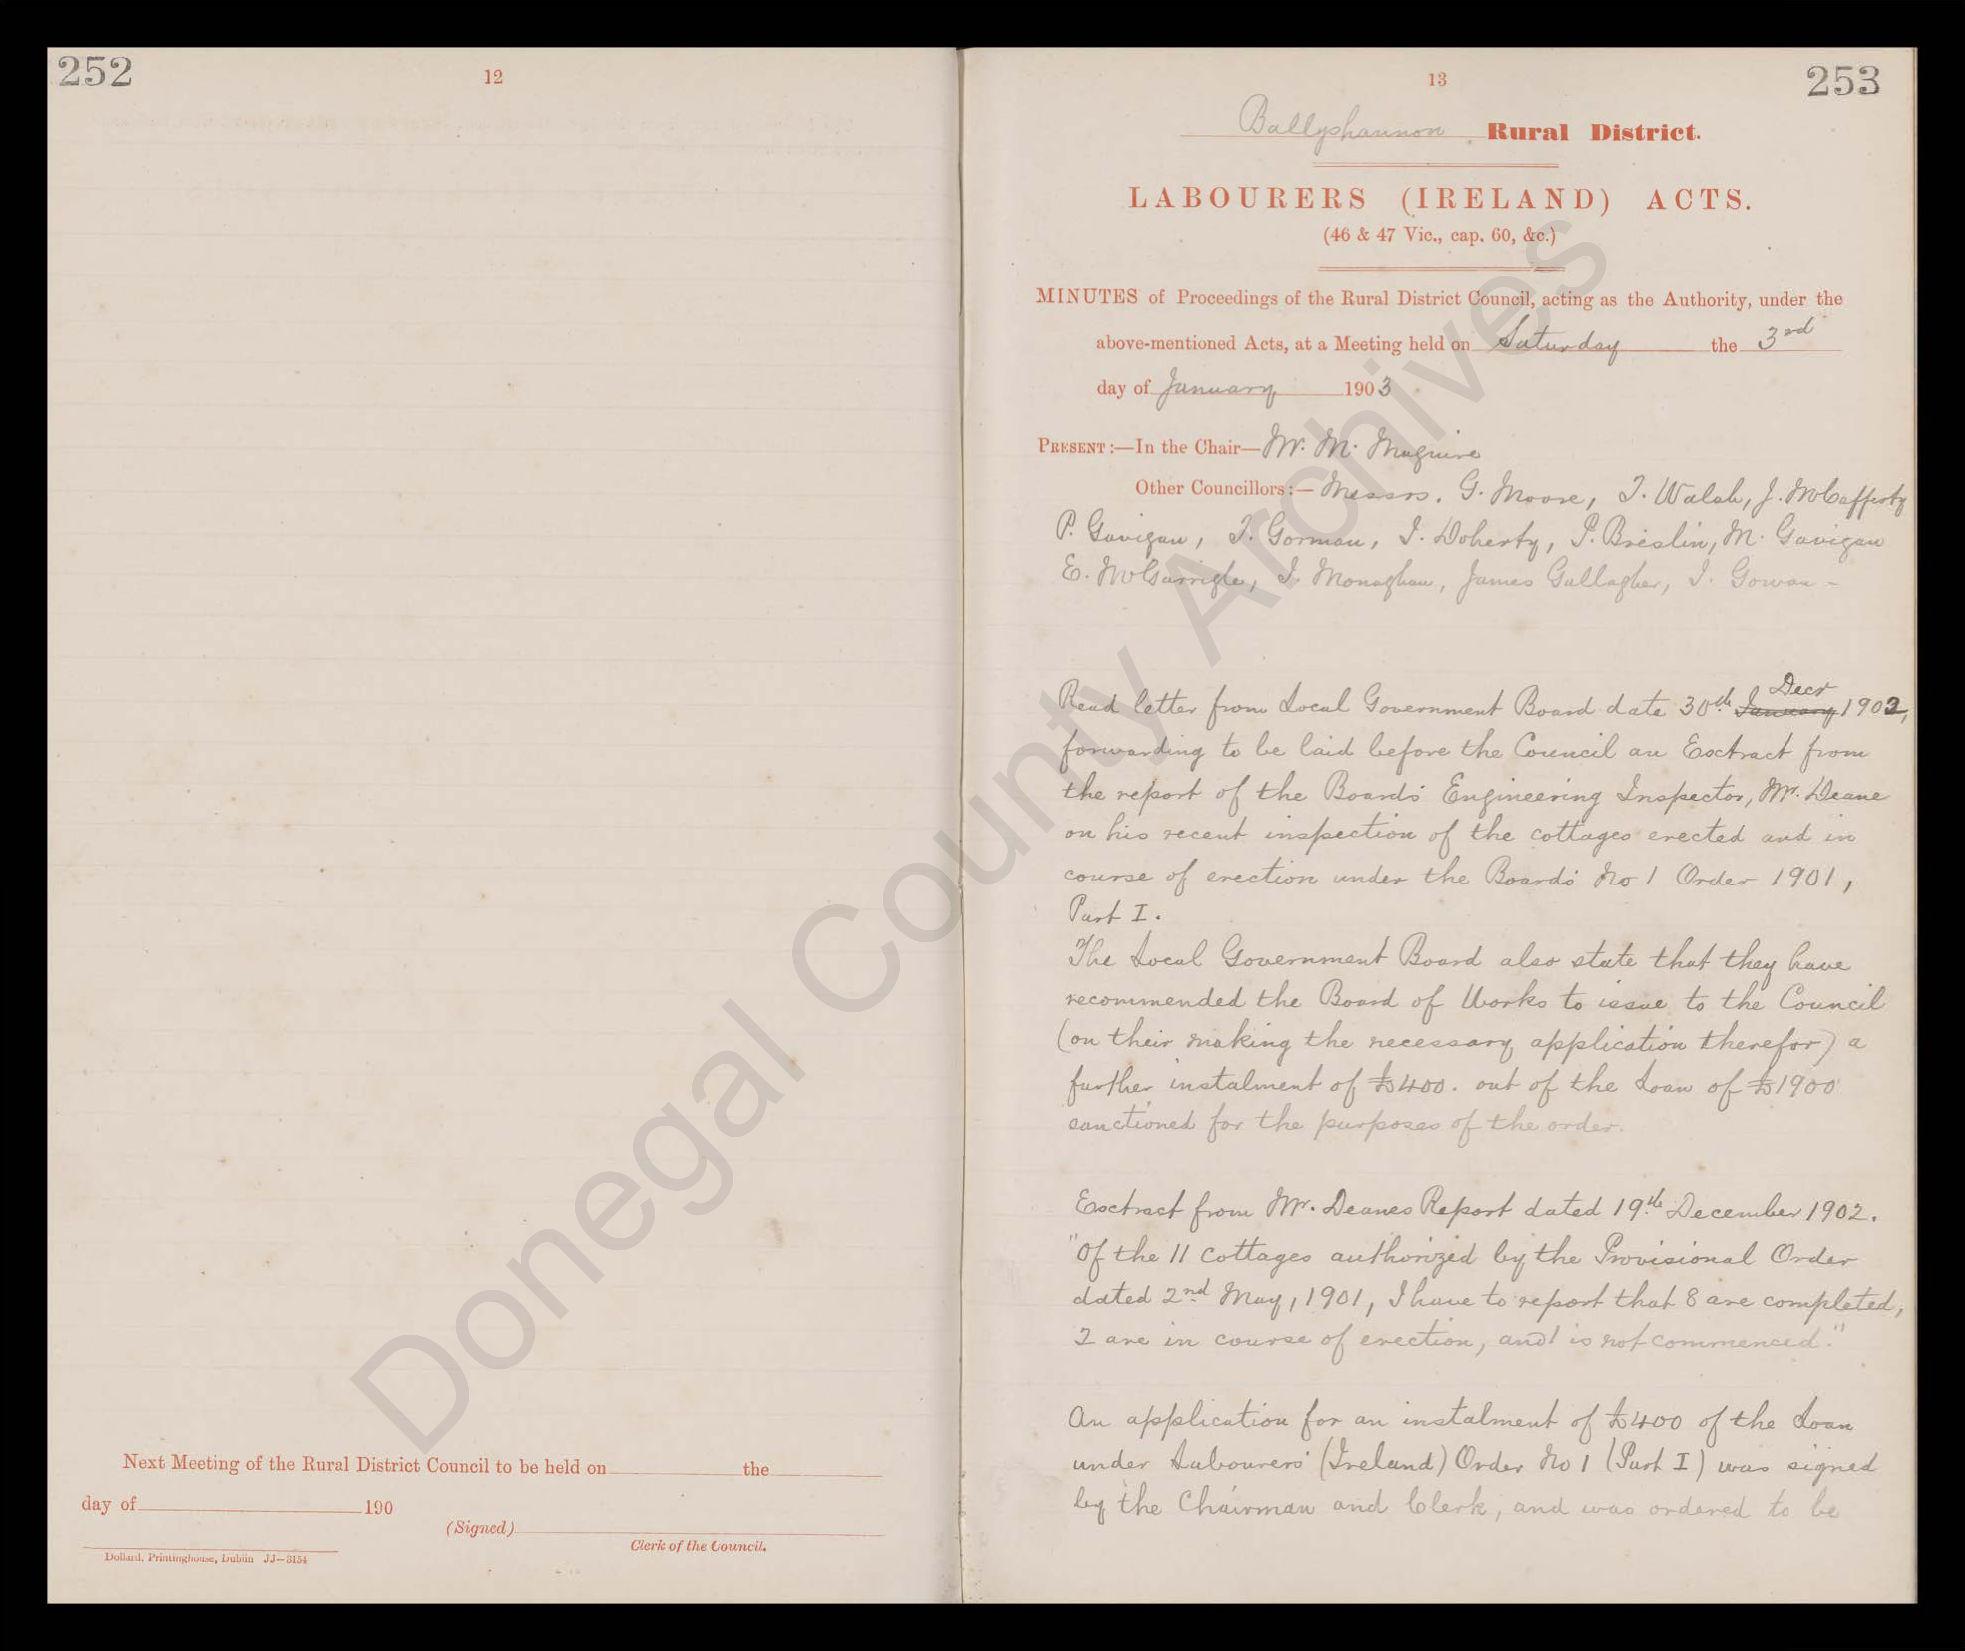 252
12
Next Meeting of the Rural District Council to be held on the
day of 190
(Signed)
Clerk of the Council.
Dollard, Printinghouse, Dublin JJ—3154
13
253
Ballyshannon Rural District.
LABOURERS (IRELAND) ACTS.
(46 & 47 Vic., cap. 60, &c.)
MINUTES of Proceedings of the Rural District Council, acting as the Authority, under the
above-mentioned Acts, at a Meeting held on Saturday the 3rd
day of January 1903
PRESENT:—In the Chair—Mr. M. Maguire
Other Councillors:— Messrs. G. Moore, T. Walsh, J. McCafferty
P. Gavigan, T. Gorman, J. Doherty, P. Breslin, M. Gavigan
E. McGarrigle, J. Monaghan, James Gallagher, J. Gowan -
Decr
Read letter from Local Government Board date 30th January 1902,
forwarding to be laid before the Council an Extract from
the report of the Boards' Engineering Inspector, Mr. Deane
on his recent inspection of the cottages erected and in
course of erection under the Boards' No 1 Order 1901,
Part I.
The Local Government Board also state that they have
recommended the Board of Works to issue to the Council
(on their making the necessary application therefor) a
further instalment of £400. out of the Loan of £1900
sanctioned for the purposes of the order.
Extract from Mr. Deanes Report dated 19th December 1902.
"Of the 11 cottages authorized by the Provisional Order
dated 2nd May, 1901, I have to report that 8 are completed,
2 are in course of erection, and 1 is not commenced."
An application for an instalment of £400 of the Loan
under Labourers' (Ireland) Order No 1 (Part I) was signed
by the Chairman and Clerk, and was ordered to be
Donegal County Archives